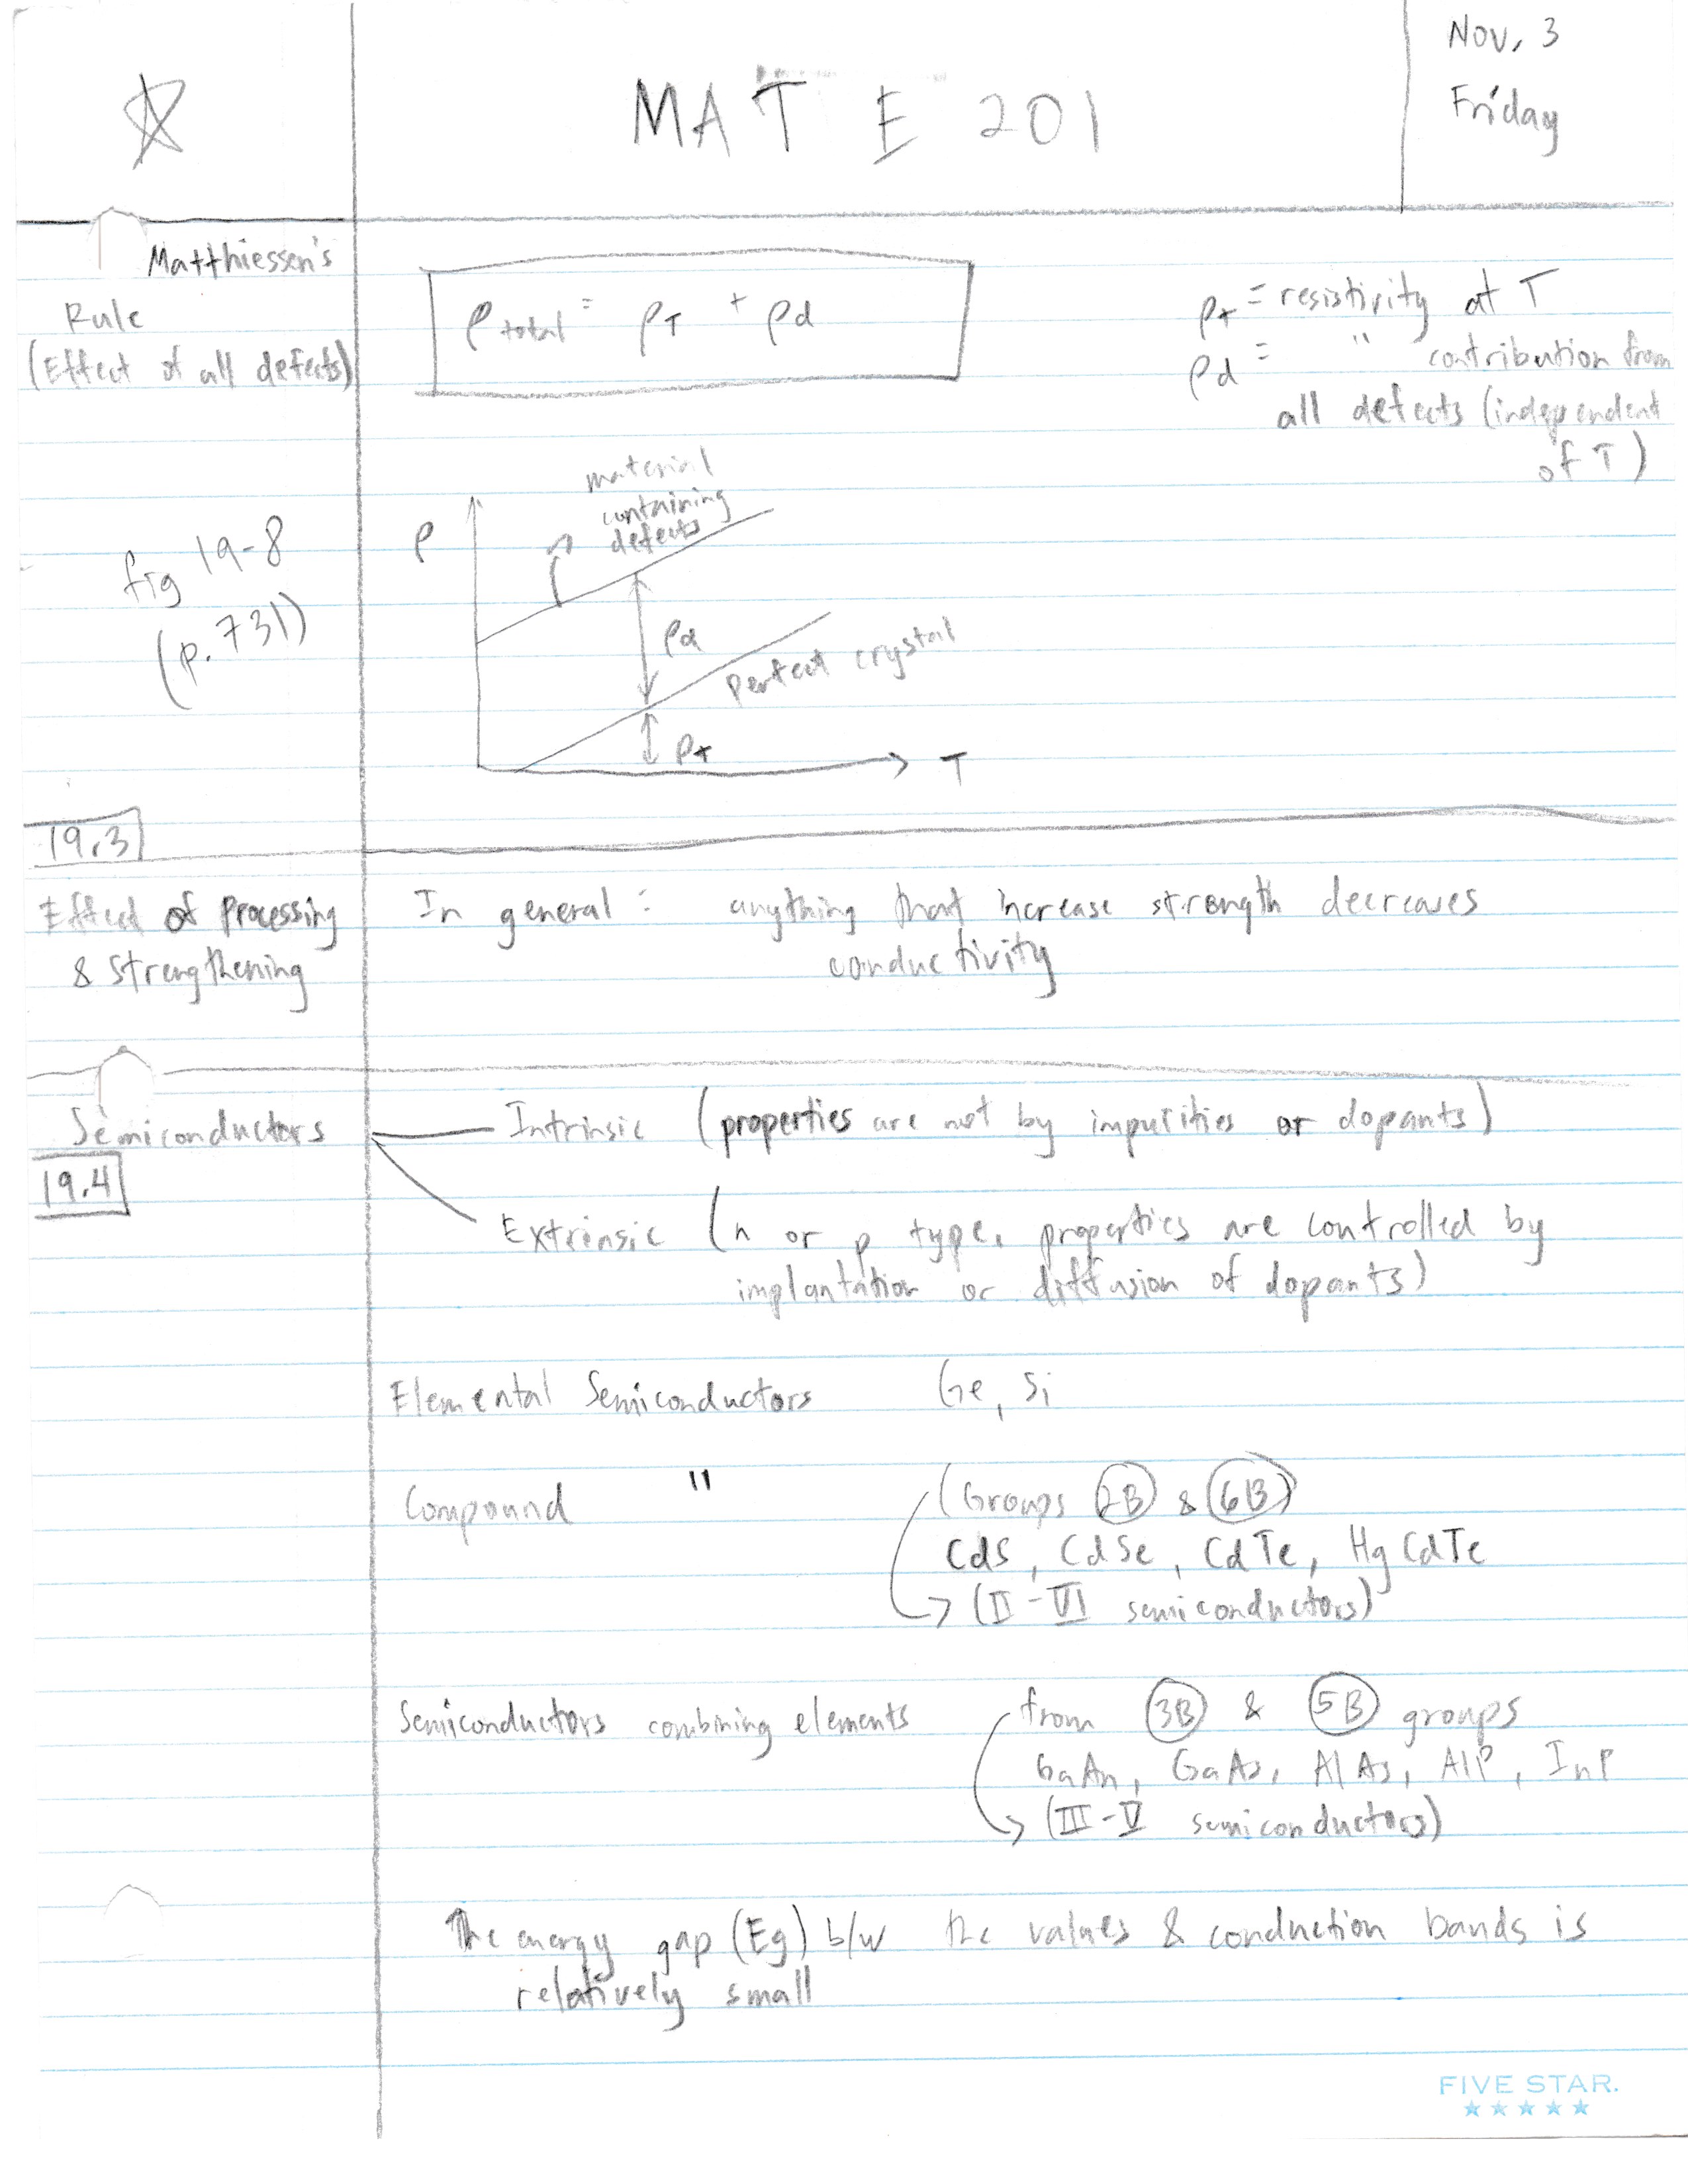 Nov. 3
Friday
MAT E 201
Matthiessen's
Rule
(Effect of all defects)
ρtotal = ρT + ρd
ρT = resistivity at T
ρd = " contribution from
all defects (independent
of T)
fig 19-8
(p. 731)
ρ
material
containing
defects
ρd
perfect crystal
ρT
T
19.3
Effect of Processing
& Strengthening
In general: anything that increase strength decreases
conductivity
Semiconductors
19.4
Intrinsic (properties are not by impurities or dopants)
Extrinsic (n or p type, properties are controlled by
implantation or diffusion of dopants)
Elemental Semiconductors Ge, Si
Compound " (Groups 2B & 6B)
CdS, CdSe, CdTe, HgCdTe
(II-VI semiconductors)
Semiconductors combining elements from 3B & 5B groups
GaAn, GaAs, AlAs, AlP, InP
(III-V semiconductors)
The energy gap (Eg) b/w the values & conduction bands is
relatively small
FIVE STAR.